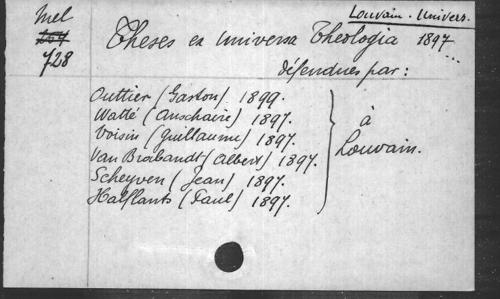 Mel
728
Louvain. Univers.
Theses ex universa Theologia 1897...
défendues par:
Outtier (Gaston) 1899.
Watté (Anschaire) 1897.
Voisin (Guillaume) 1897.
Van Brabandt (Albert) 1897.
Scheyven (Jean) 1897.
Halflants (Paul) 1897.
à
Louvain.